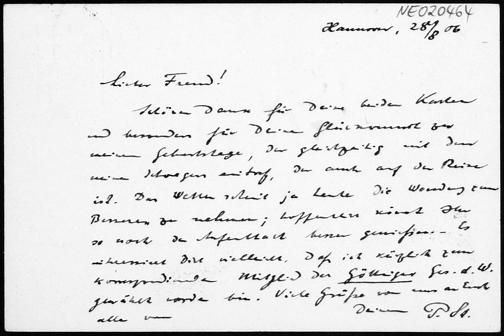 NE020464
Hannover, 28/8 06
Lieber Freund!
Schönen Dank für Deine beiden Karten
und besonders für Deinen Glückwunsch zu
meinem Geburtstage, der gleichzeitig mit dem
meines Schwagers eintraf, der auch auf der Reise
ist. Das Wetter scheint ja heute die Wendung zum
Besseren zu nehmen; hoffentlich könnt Ihr
so noch den Aufenthalt besser genießen. Es
interessiert Dich vielleicht, daß ich kürzlich zum
korrespondierenden Mitglied der Göttinger Ges. d. W.
gewählt worden bin. Viele Grüße von uns an Euch
alle von Deinem P. St.